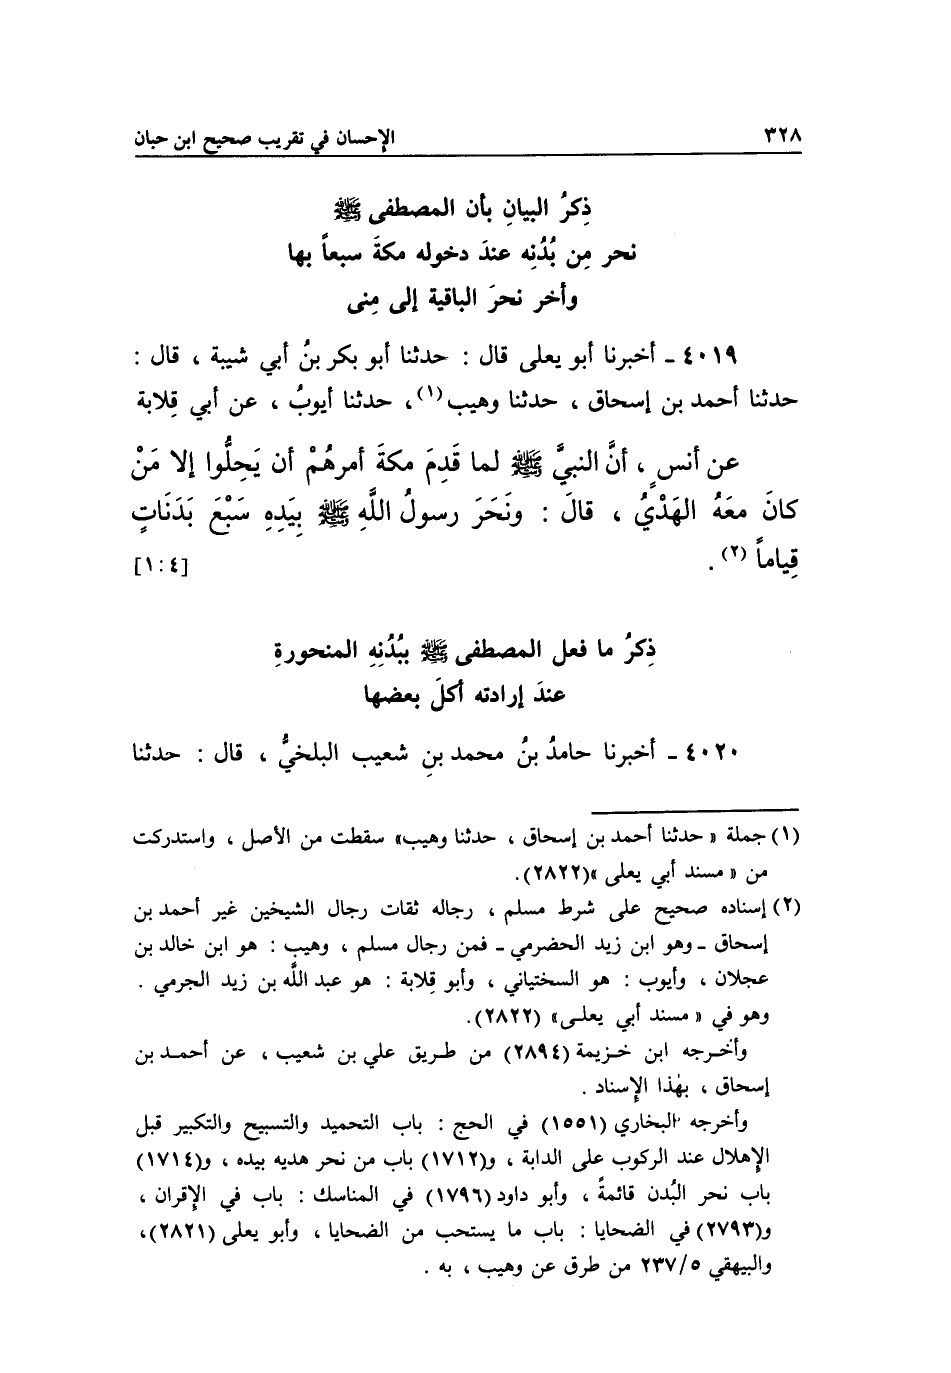 ٣٢٨ الإحسان في تقريب صحيح ابن حبان
ذِكرُ البيانِ بأن المصطفى ﷺ
نحر مِن بُدُنِه عندَ دخوله مكةَ سبعاً بها
وأخر نحرَ الباقية إلى مِنى
٤٠١٩ ـ أخبرنا أبو يعلى قال : حدثنا أبو بكر بنُ أبي شيبة ، قال :
حدثنا أحمد بن إسحاق ، حدثنا وهيب(١)، حدثنا أيوبُ ، عن أبي قِلابة
عن أنسٍ ، أنَّ النبيَّ ﷺ لما قَدِمَ مكةَ أمرهُمْ أن يَحِلُّوا إلا مَنْ
كانَ معَهُ الهَدْيُ ، قالَ : ونَحَرَ رسولُ اللَّهِ ﷺ بِيَدِهِ سَبْعَ بَدَنَاتٍ
قِياماً (٢) . [١:٤]
ذِكرُ ما فعل المصطفى ﷺ ببُدُنِهِ المنحورةِ
عندَ إرادته أكلَ بعضها
٤٠٢٠ ـ أخبرنا حامدُ بنُ محمد بنِ شعيب البلخيُّ ، قال : حدثنا
(١) جملة « حدثنا أحمد بن إسحاق ، حدثنا وهيب» سقطت من الأصل ، واستدركت
من « مسند أبي يعلى »(٢٨٢٢).
(٢) إسناده صحيح على شرط مسلم ، رجاله ثقات رجال الشيخين غير أحمد بن
إسحاق ـ وهو ابن زيد الحضرمي ـ فمن رجال مسلم ، وهيب : هو ابن خالد بن
عجلان ، وأيوب : هو السختياني ، وأبو قِلابة : هو عبد اللَّه بن زيد الجرمي .
وهو في « مسند أبي يعلـى» (٢٨٢٢).
وأخـرجه ابن خـزيمة (٢٨٩٤) من طـريق علي بن شعيب ، عن أحمـد بن
إسحاق ، بهٰذا الإسناد .
وأخرجه البخاري (١٥٥١) في الحج : باب التحميد والتسبيح والتكبير قبل
الإهلال عند الركوب على الدابة ، و(١٧١٢) باب من نحر هديه بيده ، و(١٧١٤)
باب نحر البُدن قائمةً ، وأبو داود (١٧٩٦) في المناسك : باب في الإقران ،
و(٢٧٩٣) في الضحايا : باب ما يستحب من الضحايا ، وأبو يعلى (٢٨٢١)،
والبيهقي ٢٣٧/٥ من طرق عن وهيب ، به .